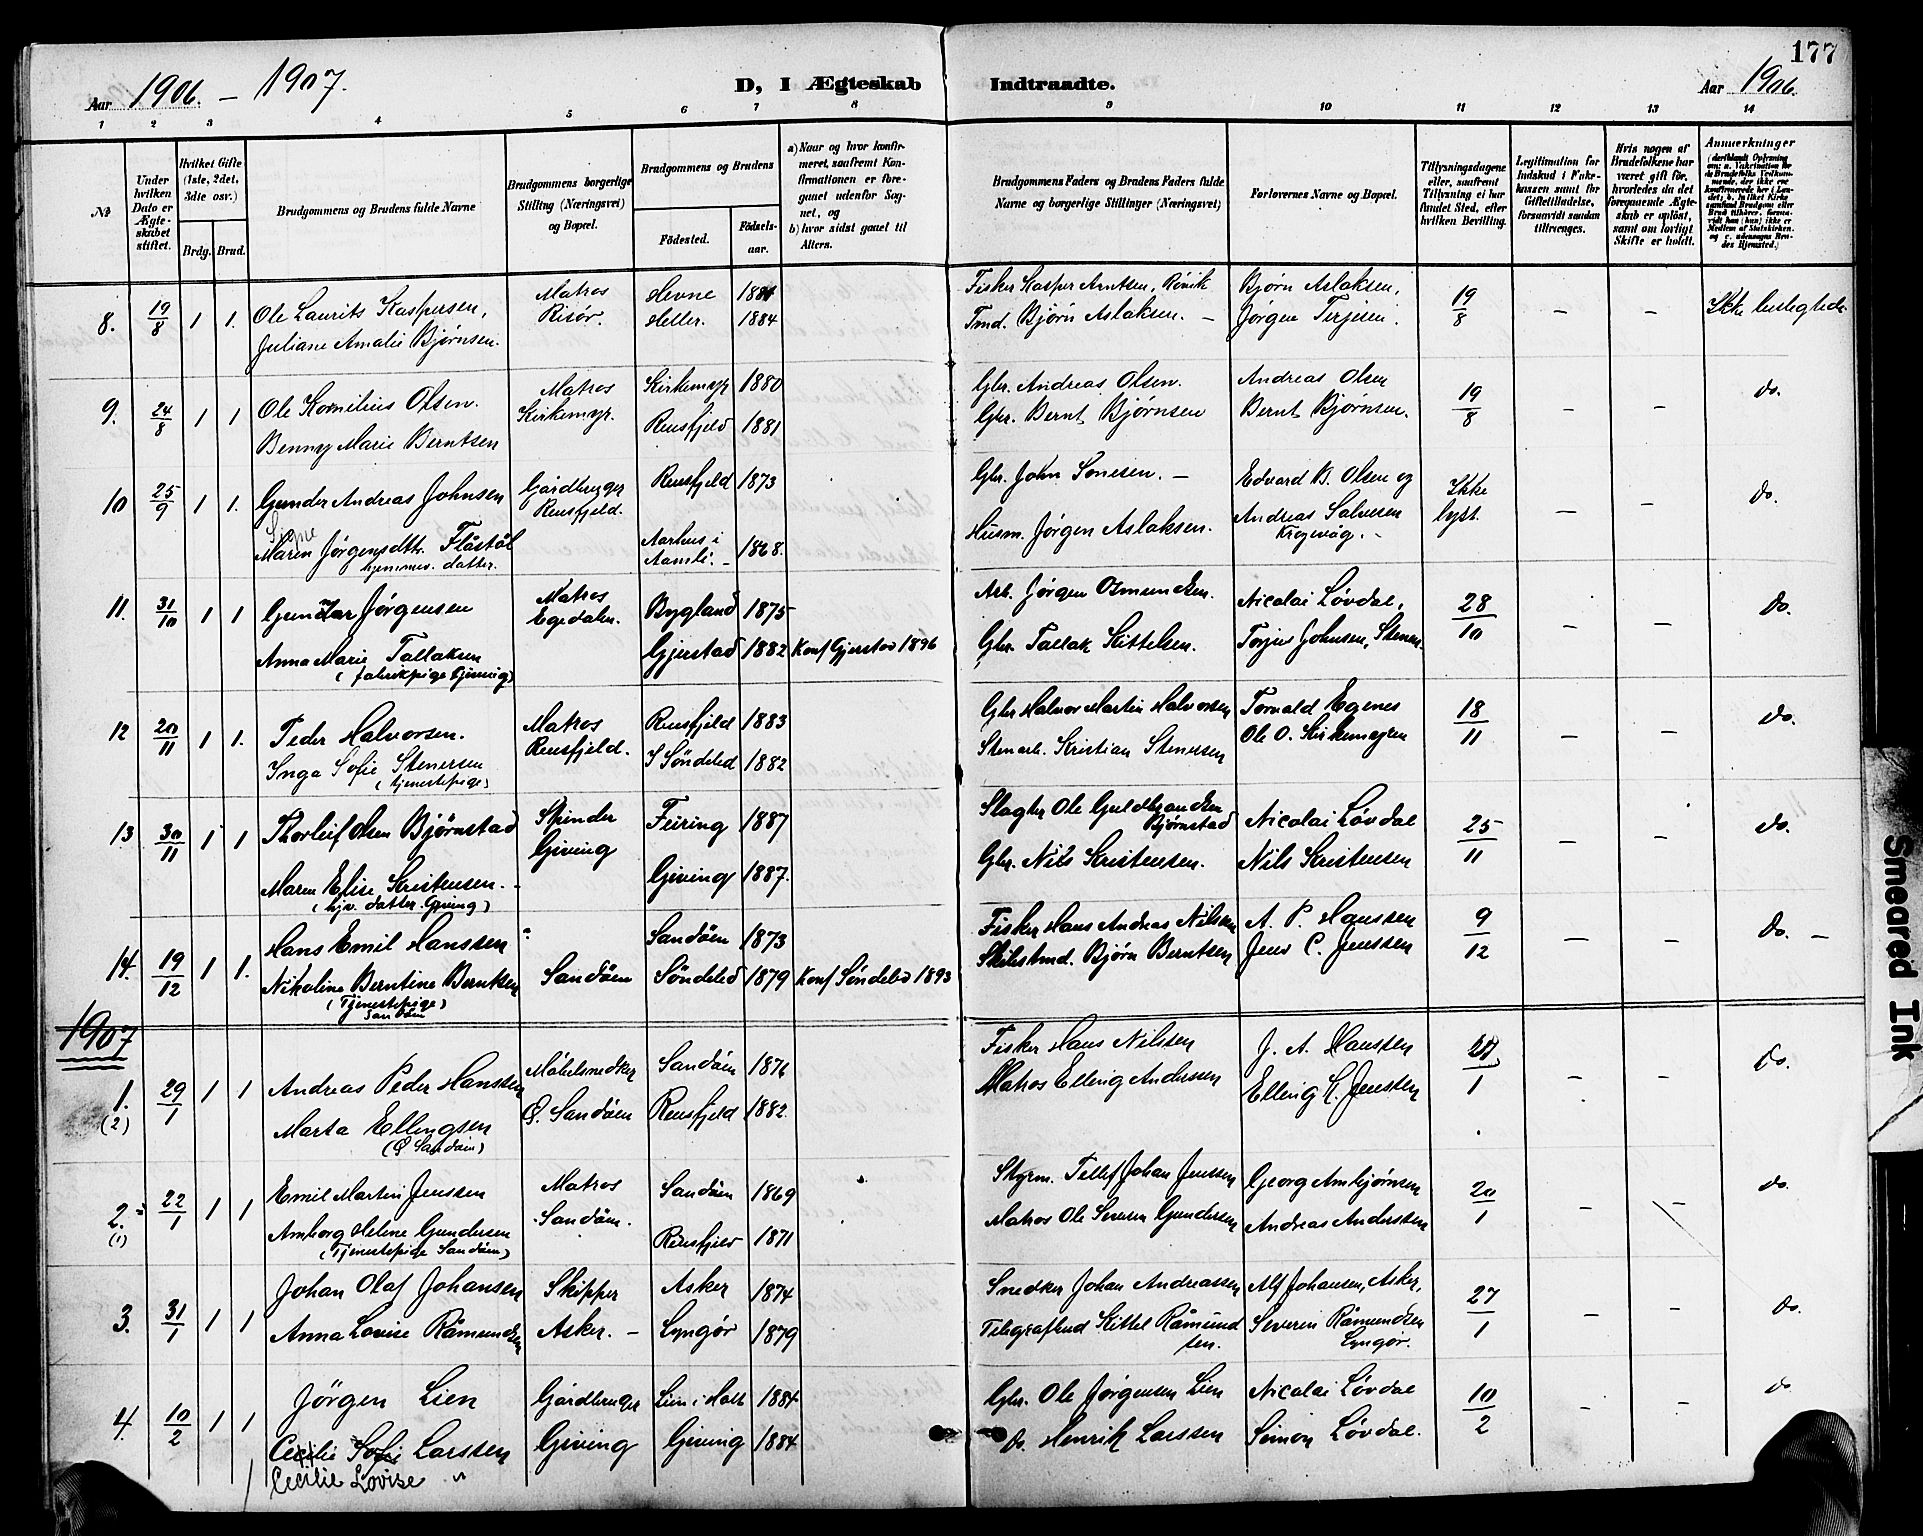 177
Aar 1906. – 1907.
D, I Ægteskab Indtraadte.
Aar 1906.
1 2 3 4 5 6 7 8 9 10 11 12 13 14
№
Under hvilken Dato er Ægteskabet stiftet.
Hvilket Gifte (1ste, 2det, 3die osv.)
Brdg. Brud.
Brudgommens og Brudens fulde Navne
Brudgommens borgerlige Stilling (Næringsvei) og Bopæl.
Brudgommens og Brudens
Fødested.
Fødselsaar.
a) Naar og hvor konfirmeret, saafremt Konfirmationen er foregaaet udenfor Sognet, og
b) hvor sidst gaaet til Alters.
Brudgommens Faders og Brudens Faders fulde Navne og borgerlige Stillinger (Næringsvei)
Forlovernes Navne og Bopæl.
Tillysningsdagene eller, saafremt Tillysning ei har fundet Sted, efter hvilken Bevilling.
Legitimation for Indskud i Enkekassen samt for Giftetilladelse, forsaavidt saadan tiltrænges.
Hvis nogen af Brudefolkene har været gift før, hvorledes da det foregaaende Ægteskab er opløst, samt om lovligt Skifte er holdt.
Anmærkninger
8. 19/8 1 1. Ole Laurits Kaspersen, Matros Risör. Hevne 1881 Fisker Kasper Arntsen, Rövik Bjørn Aslaksen, 19/8 – – Ikke beslegtede.
Juliane Amalie Bjørnsen. Heller. 1884 Tmd. Bjørn Aslaksen. – Jørgen Terjesen.
9. 24/8 1 1 Ole Kornilius Olsen. Matros Kirkemyr. Kirkemyr 1880 Gbr. Andreas Olsen. Andreas Olsen 19/8 – – do.
Benny Marie Berntsen Reusfjeld 1881 Gbr. Bernt Bjørnsen Bernt Bjørnsen.
10 25/9 1 1. Gunder Andreas Johnsen Gårdbruger Reusfjeld. Reusfjeld 1873 Gbr. John Sonesen. – Edvard B. Olsen og Ikke lyst. – – do.
Signe
Maren Jørgensdtr. Flåstøl Aarhus i Aamli. – 1868. Husm. Jørgen Aslaksen. Andreas Salvesen Krogevåg. –
hjemmev. datter.
11. 31/10 1 1 Gunnar Jørgensen Matros Egedalen. Bygland 1875 Arb. Jørgen Osmundsen. Nicolai Løvdal, 28/10 – – do.
Anna Marie Tallaksen Gjerstad 1882 Konf Gjerstad 1896 Gbr. Tallak Kittelsen. Torjus Johnsen, Stenen.
(fabrikpige Giving)
12 20/11 1 1. Peder Halvorsen. Matros Reusfjeld. Reusfjeld 1883 Gbr Halvor Martin Halvorsen Torvald Egenes 18/11 – – do.
Inga Sofie Stenersen S Søndeled 1882 Stenarb. Kristian Stenersen Ole O. Kirkemyren
(tjenestepige)
13 30/11 1 1 Thorleif Olsen Bjørnstad Spinder Giving Feiring 1887 Slagter Ole Guldbrandsen Bjørnstad Nicolai Løvdal 25/11 – – do.
Maren Elise Kristensen. Giving 1887. Gbr. Nils Kristensen. Nils Kristensen
(hjv. datter. Giving)
14. 19/12 1 1. Hans Emil Hanssen Sandøen Sandøen 1873 Fisker Hans Andreas Nilssen A. P. Hanssen 9/12 – – do. –
Nikoline Berntine Berntsen Søndeled 1879 Konf Søndeled 1893 Skibstmd. Bjørn Berntsen Jens C. Jenssen
(Tjenestepige Sandøen)
1907
1. (2) 29/1 1 1 Andreas Peder Hanssen Møbelsnedker Ø. Sandøen Sandøen 1876 Fisker Hans Nilssen J. A. Hanssen 20/1 – – do.
Marta Ellingsen Reusfjeld 1882. Matros Elling Anderssen Elling K. Jenssen
(Ø Sandøen)
2. (1) 22/1 1 1 Emil Martin Jenssen Matros Sandøen. Sandøen 1869 Styrm. Tellef Johan Jenssen Georg Ambjørnsen 20/1 – – do.
Amborg Helene Gundersen Reusfjeld 1871 Matros Ole Severin Gundersen Andreas Anderssen
(Tjenestepige Sandøen)
3. 31/1 1 1 Johan Olaf Johansen Skipper Asker. – Asker 1874 Snedker Johan Andreassen Alf Johansen, Asker, 27/1 – – do.
Anna Lovise Råmundsen Lyngør 1879 Telegrafbud Kittel Råmundsen. Severin Råmundsen Lyngør.
4. 10/2 1 1 Jörgen Lien Gårdbruger Giving Lien i Holt 1884 Gbr. Ole Jørgensen Lien Nicolai Løvdal 10/2 – – do
Cecilie Sofie Larssen Giving 1884 do. Henrik Larssen Simon Løvdal.
Cecilie Lovise "
Smeared Ink